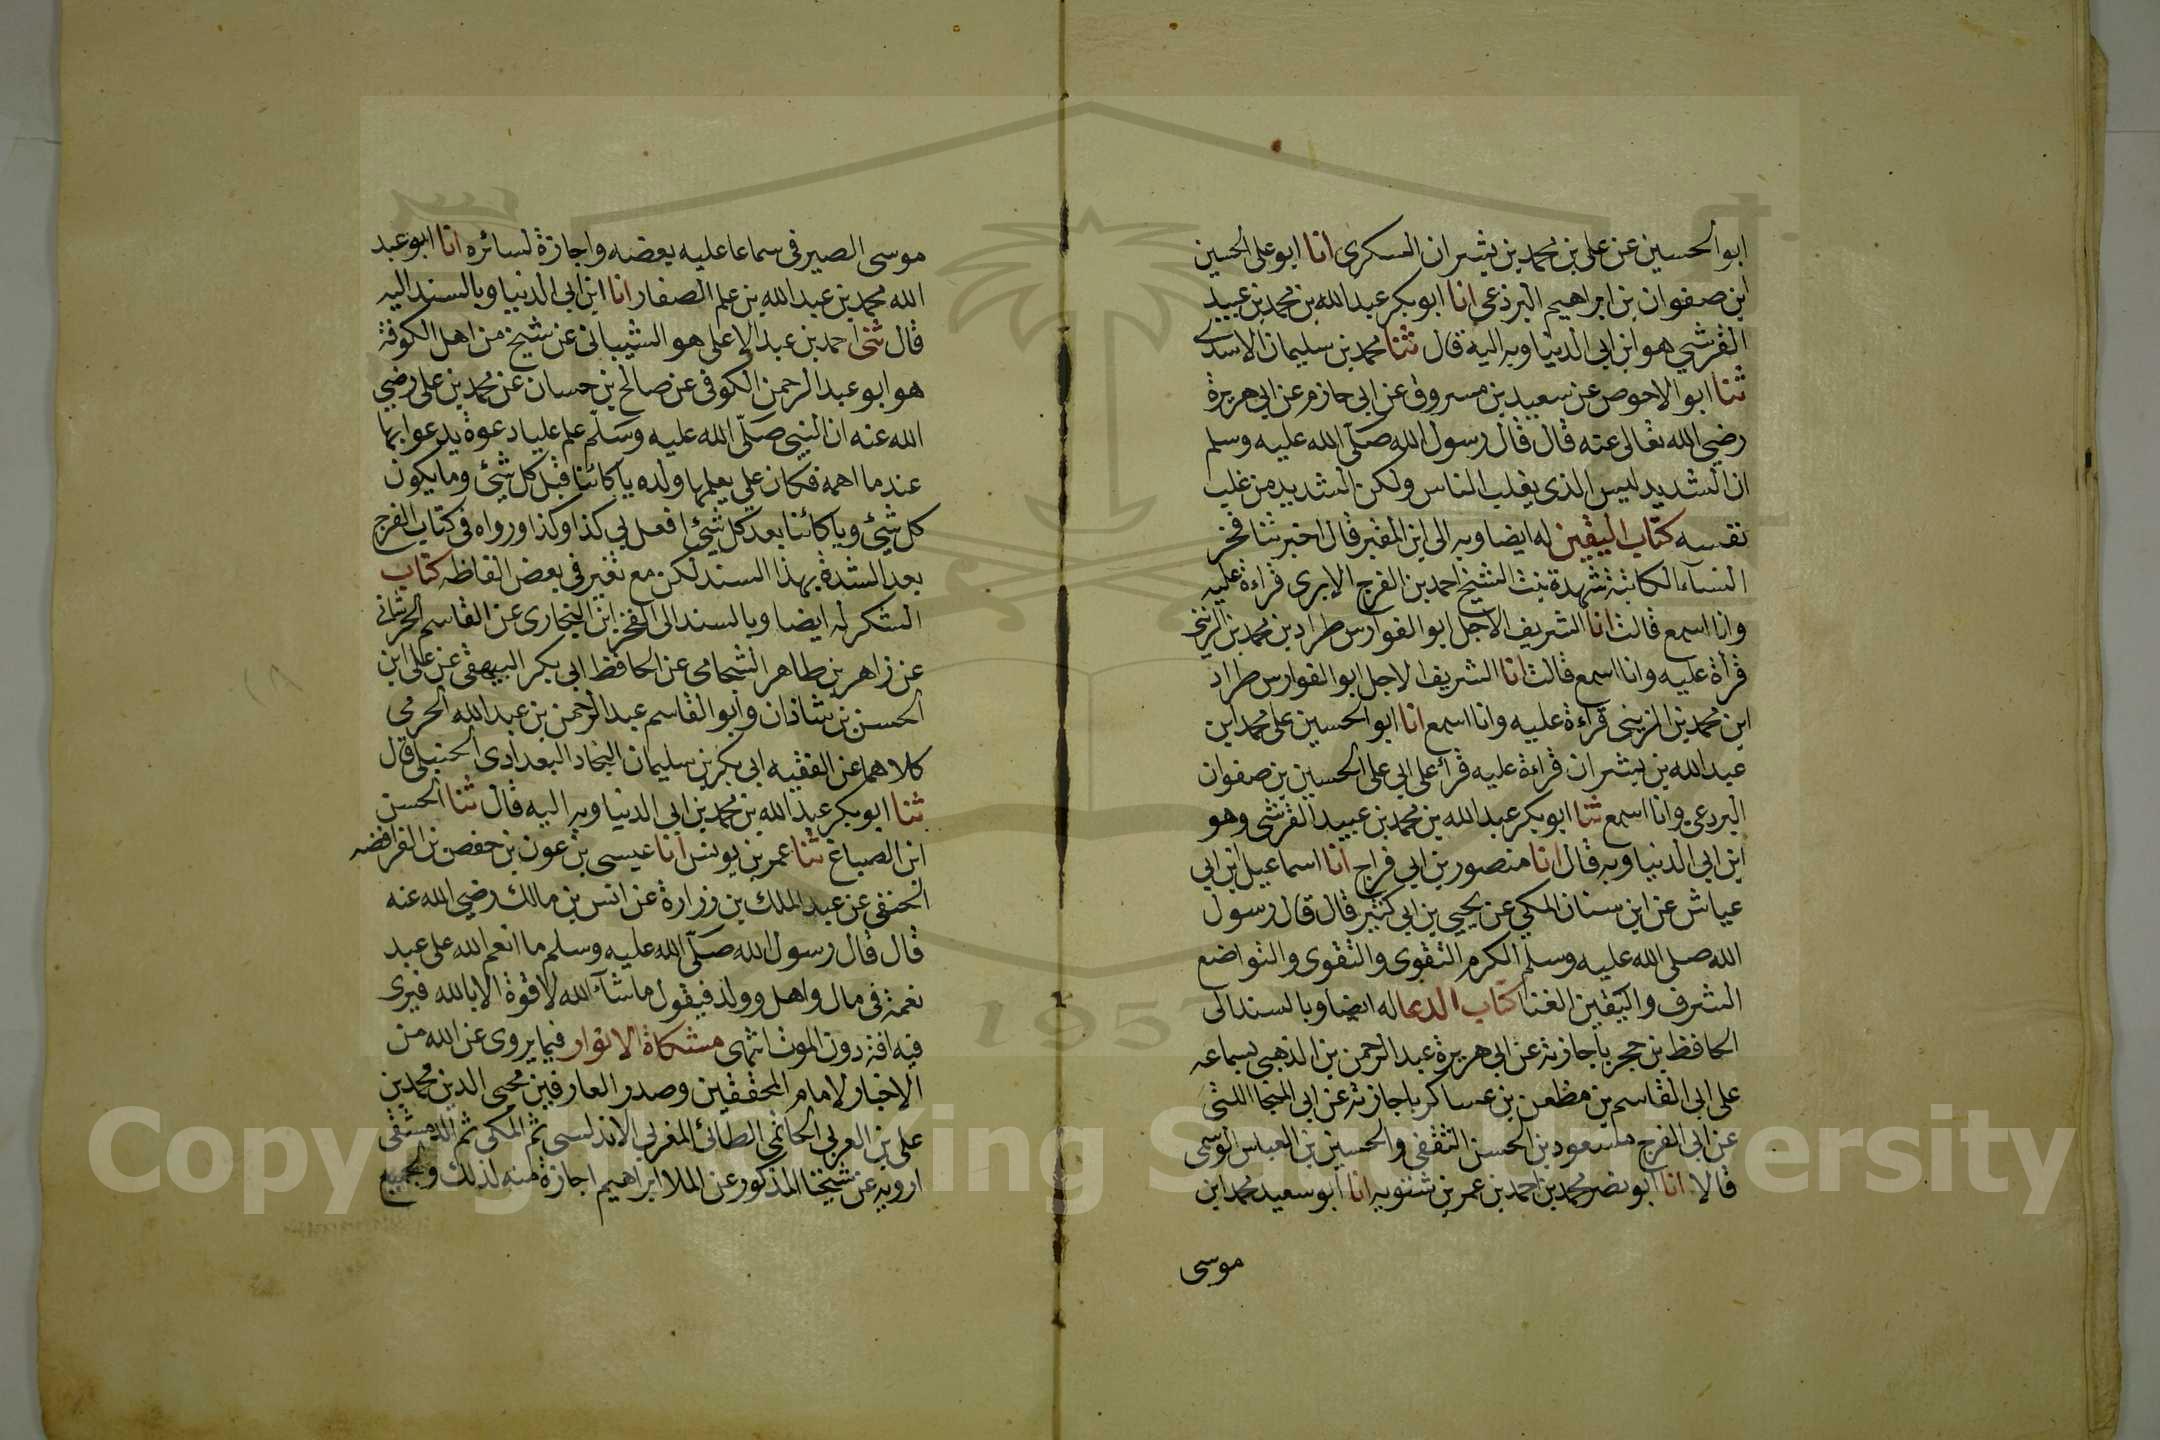 ابو الحسين عن على بن محمد بن بشران السكرى انا ابو على الحسين
ابن صفوان بن ابراهيم البرذعى انا ابو بكر عبد الله بن محمد بن عبيد
القرشي هو ابن ابى الدنيا وبه اليه قال ثنا محمد بن سليمان الاسدى
ثنا ابو الاحوص عن سعيد بن مسروق عن ابى حازم عن ابى هريرة
رضي الله تعالى عنه قال قال رسول الله صلى الله عليه وسلم
ان الشديد ليس الذى يغلب الناس ولكن الشديد من غلب
نفسه كتاب اليقين له ايضا وبه الى ابن المقير قال اخبرتنا فخر
النسآء الكاتبة شهدة بنت الشيخ احمد بن الفرج الابرى قراءة عليه
وانا اسمع قالت انا الشريف الاجل ابو الفوارس طراد بن محمد بن الزينى
قرأة عليه وانا اسمع قالت انا الشريف الاجل ابو الفوارس طراد
ابن محمد بن الزينى قراءة عليه وانا اسمع انا ابو الحسين على محمد ابن
عبد الله بن بشران قراءة عليه قرأ على ابى على الحسين بن صفوان
البردعى وانا اسمع ثنا ابو بكر عبد الله بن محمد بن عبيد القرشى وهو
ابن ابى الدنيا وبه قال انا منصور بن ابى فراج انا اسماعيل ابن ابى
عياش عن ابن سنان المكي عن يحيى بن ابى كثير قال قال رسول
الله صلى الله عليه وسلم الكرم التقوى والتقوى والتواضع
الشرف واليقين الغنا كتاب الدعا له ايضا وبالسند الى
الحافظ بن حجر باجازته عن ابى هريرة عبد الرحمن بن الذهبى بسماعه
على ابى القاسم بن مظعن بن عساكر باجازته عن ابى المنجا اللتى
عن ابى الفرج مسعود بن الحسن الثقفى والحسين بن العباس الرسمى
قالا انا ابو نصر محمد بن احمد بن عمر بن شنويه انا ابو سعيد محمد ابن
موسى
موسى الصيرفى سماعا عليه بعضه واجازة لسائره انا ابو عبد
الله محمد بن عبد الله بن علم الصفار انا ابن ابى الدنيا وبالسند اليه
قال ثنى احمد بن عبد الاعلى هو الشيبانى عن شيخ من اهل الكوفة
هو ابو عبد الرحمن الكوفى عن صالح بن حسان عن محمد بن على رضي
الله عنه ان النبي صلى الله عليه وسلم علم عليا دعوة يدعوا بها
عند ما اهمه فكان علي يعلمها ولده يا كائنا قبل كل شيئ وما يكون
كل شيئ ويا كائنا بعد كل شيئ افعل بي كذا وكذا ورواه فى كتاب الفرج
بعد الشدة بهذا السند لكن مع تغير فى بعض الفاظه كتاب
الشكر له ايضا وبالسند الى الفخر ابن البخارى عن القاسم الخرشانى
عن زاهر بن طاهر الشحامى عن الحافظ ابى بكر البيهقى عن على ابن
الحسن بن شاذان وابو القاسم عبد الرحمن بن عبد الله الحرمى
كلاهما عن الفقيه ابى بكر بن سليمان النجاد البعدادى الحنبلى قال
ثنا ابو بكر عبد الله بن محمد بن ابى الدنيا وبه اليه قال ثنا الحسن
ابن الصباغ ثنا عمر بن يونس انا عيسى بن عون بن حفص بن الفرافضه
الحنفى عن عبد الملك بن زرارة عن انس بن مالك رضي الله عنه
قال قال رسول الله صلى الله عليه وسلم ما انعم الله على عبد
نعمة فى مال واهل وولد فيقول ما شآء الله لا قوة الا بالله فيرى
فيه افة دون الموت انتهى مشكاة الانوار فيما يروى عن الله من
الاخبار لامام المحققين وصدر العارفين محيى الدين محمد بن
على بن العربى الحاتمي الطائئ المغربى الاندلسى ثم المكى ثم الدمشقى
ارويه عن شيخنا المذكور عن الملا ابراهيم اجازة منه لذلك ولجميع
Copyright © King Saud University
1957